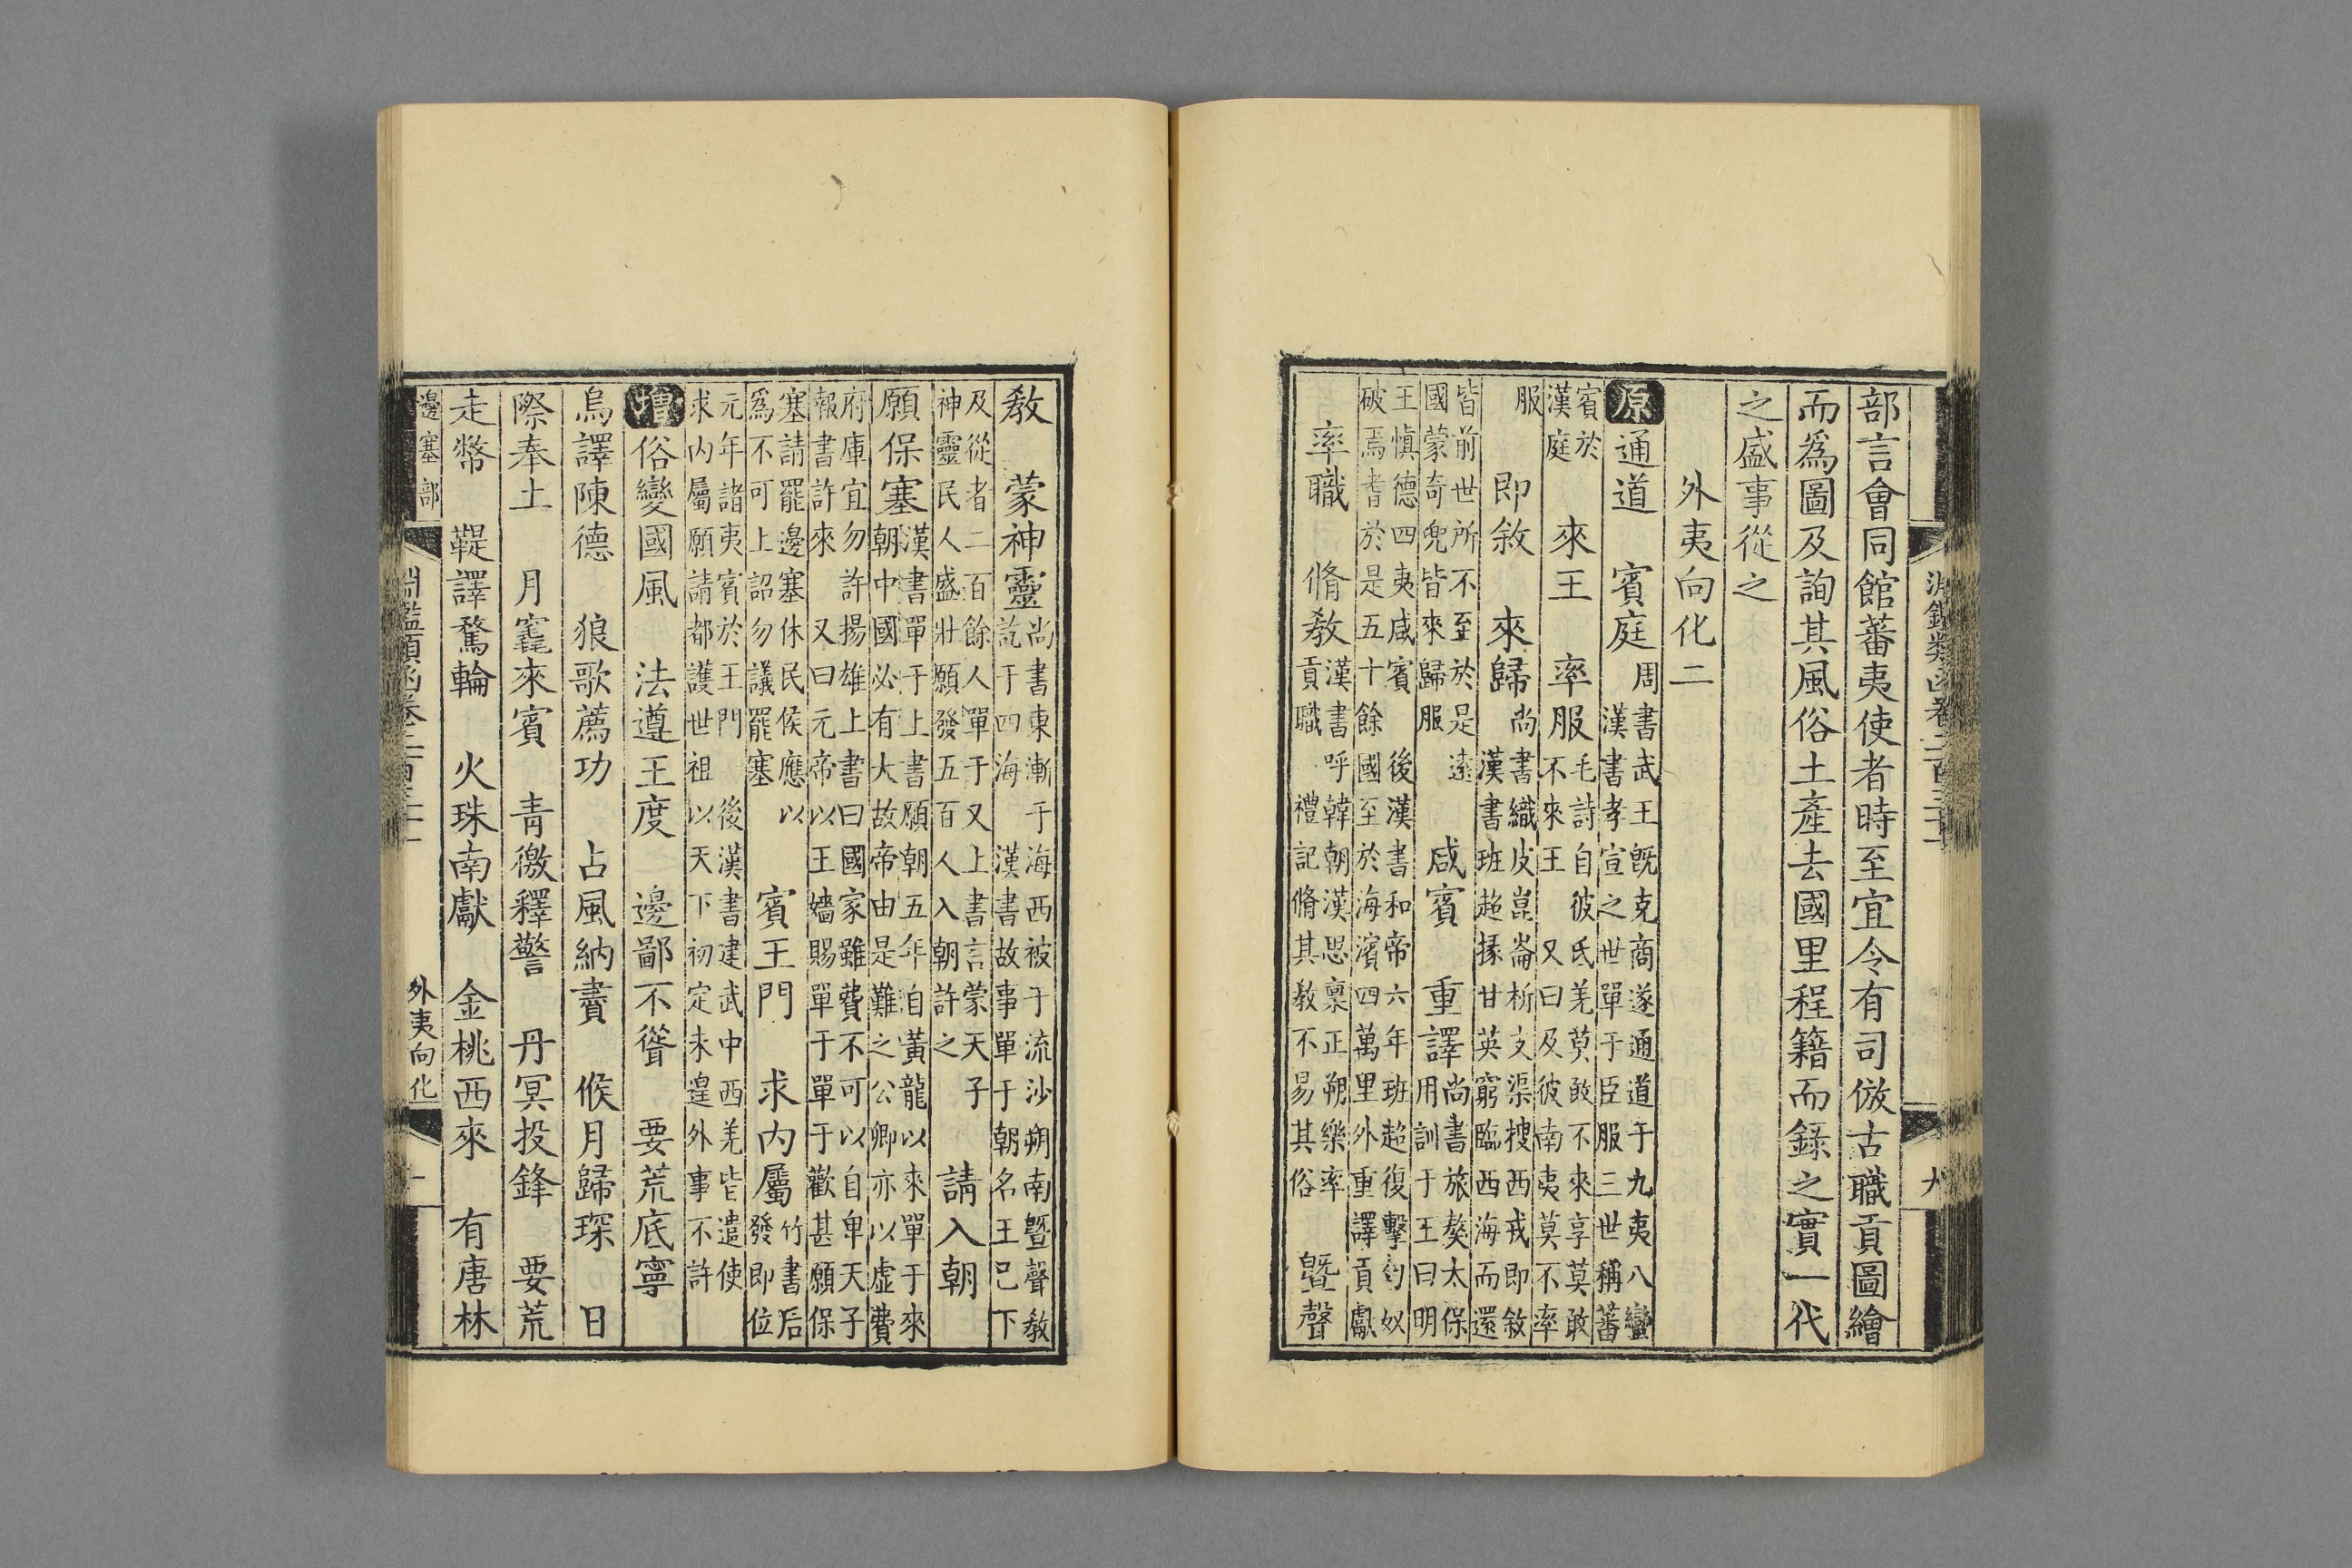 淵鑑類函卷二百三十一 九
部言會同館蕃夷使者時至宜令有司倣古職貢圖繪
而爲圖及詢其風俗土產去國里程籍而錄之實一代
之盛事從之
外夷向化二
原通道 賓庭周書武王旣克商遂通道于九夷八蠻 漢書孝宣之世單于臣服三世稱蕃
賓於漢庭 來王 率服毛詩自彼氐羌莫敢不來享莫敢不來王 又曰及彼南夷莫不率
服 即敘 來歸尚書織皮崑崙析支渠搜西戎即敘 漢書班超掾甘英窮臨西海而還
皆前世所不至於是遠國蒙奇兜皆來歸服 咸賓 重譯尚書旅獒太保用訓于王曰明
王愼德四夷咸賓 後漢書和帝六年班超復擊匈奴破焉耆於是五十餘國至於海濱四萬里外重譯貢獻
率職 脩教漢書呼韓朝漢思稟正朔樂率貢職 禮記脩其教不易其俗 曁聲
教 蒙神靈尚書東漸于海西被于流沙朔南曁聲教訖于四海 漢書故事單于朝名王已下
及從者二百餘人單于又上書言蒙天子神靈民人盛壯願發五百人入朝許之 請入朝
願保塞漢書單于上書願朝五年自黃龍以來單于來朝中國必有大故帝由是難之公卿亦以虛費
府庫宜勿許揚雄上書曰國家雖費不可以自卑天子報書許來 又曰元帝以王嬙賜單于單于歡甚願保
塞請罷邊塞休民候應以爲不可上詔勿議罷塞 賓王門 求內屬竹書后發即位
元年諸夷賓於王門 後漢書建武中西羌皆遣使求內屬願請都護世祖以天下初定未遑外事不許
增俗變國風 法遵王度 邊鄙不聳 要荒底寧
烏譯陳德 狼歌薦功 占風納賮 候月歸琛 日
際奉土 月竁來賓 青徼釋警 丹冥投鋒 要荒
走幣 鞮譯騖輪 火珠南獻 金桃西來 有唐林
邊塞部 淵鑑類函卷二百三十一 外夷向化